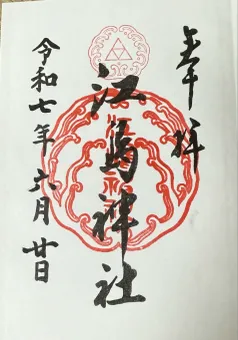 奉拝
江島神社
令和七年六月廿日